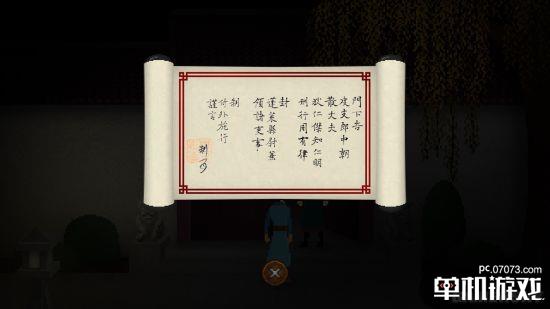 門下
度支郎中朝
散大夫
狄仁傑知仁明
刑行用有律
封
蓬萊縣尉兼
領諸
制
付外施行
謹言
制可
pc.07073.com
单机游戏